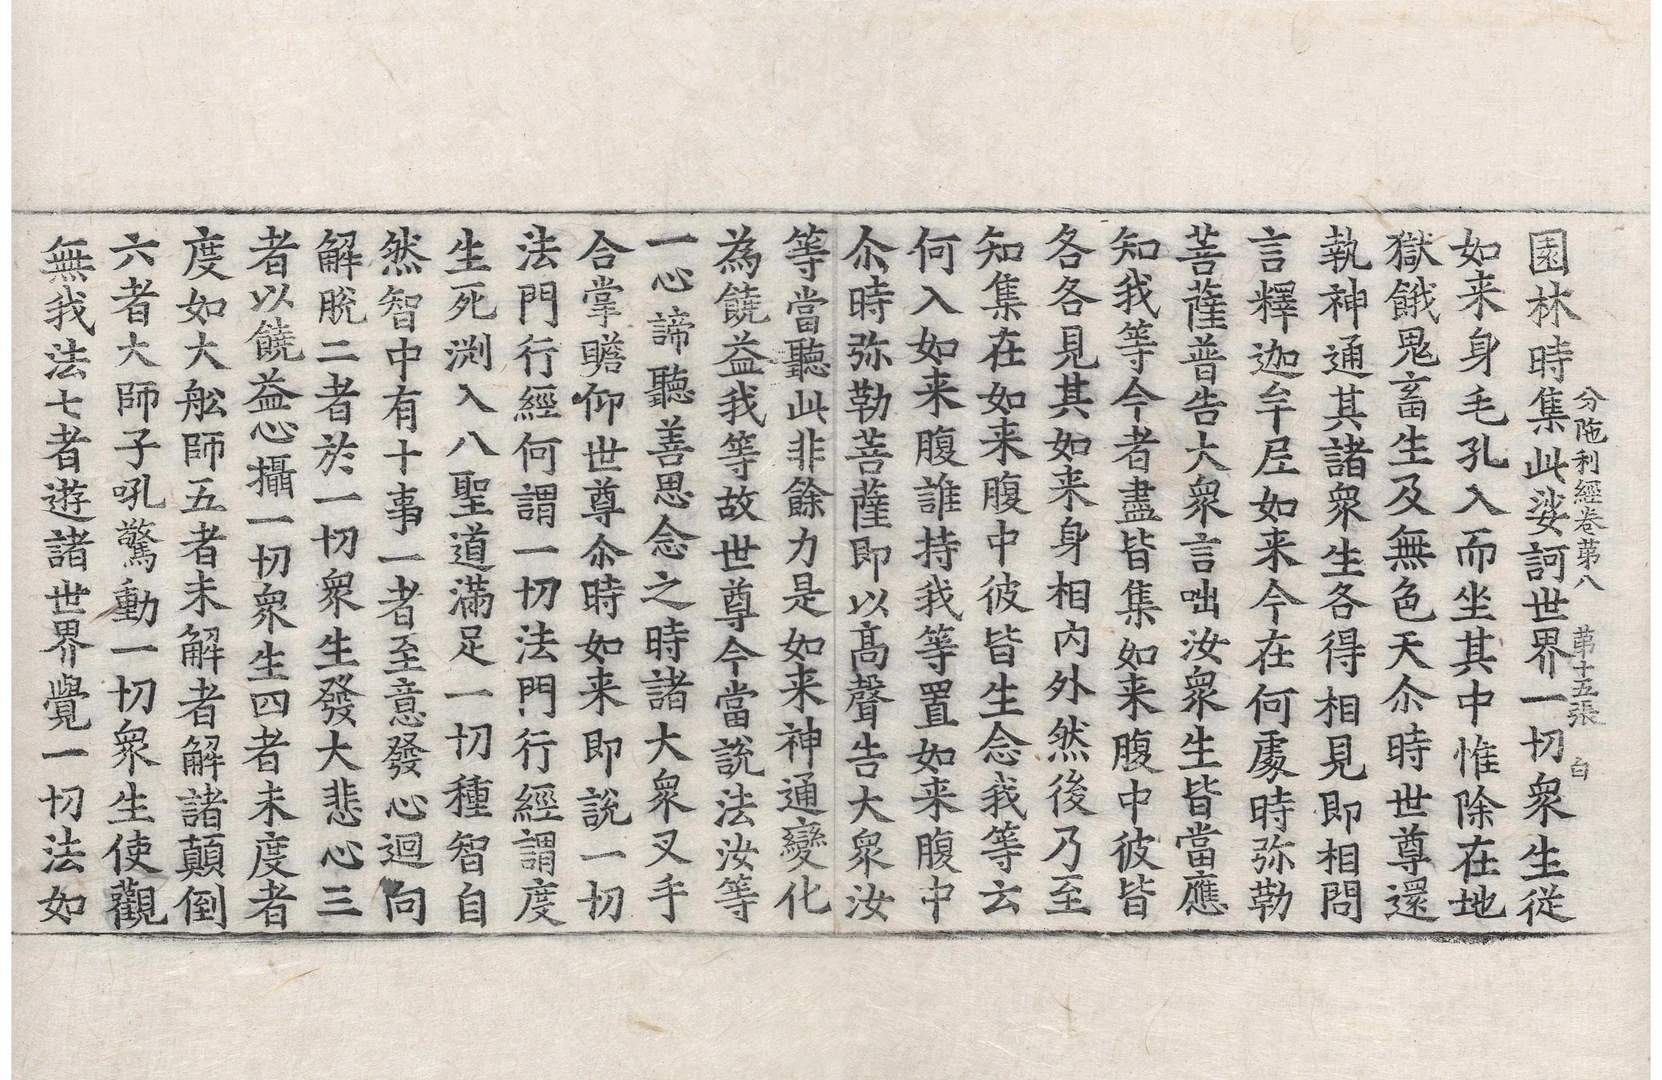 分陁利經卷苐八 苐十五張 白
園林時集此娑訶世界一切衆生從
如来身毛孔入而坐其中惟除在地
獄餓鬼畜生及無色天尒時世尊還
執神通其諸衆生各得相見即相問
言釋迦牟尼如来今在何處時弥勒
菩薩普告大衆言咄汝衆生皆當應
知我等今者盡皆集如来腹中彼皆
各各見其如来身相内外然後乃至
知集在如来腹中彼皆生念我等云
何入如来腹誰持我等置如来腹中
尒時弥勒菩薩即以髙聲告大衆汝
等當聽此非餘力是如来神通變化
為饒益我等故世尊今當説法汝等
一心諦聽善思念之時諸大衆叉手
合掌瞻仰世尊尒時如来即説一切
法門行經何謂一切法門行經謂度
生死渕入八聖道滿足一切種智自
然智中有十事一者至意發心迴向
解脫二者於一切衆生發大悲心三
者以饒益心攝一切衆生四者未度者
度如大舩師五者未解者解諸顛倒
六者大師子吼驚動一切衆生使觀
無我法七者遊諸世界覺一切法如